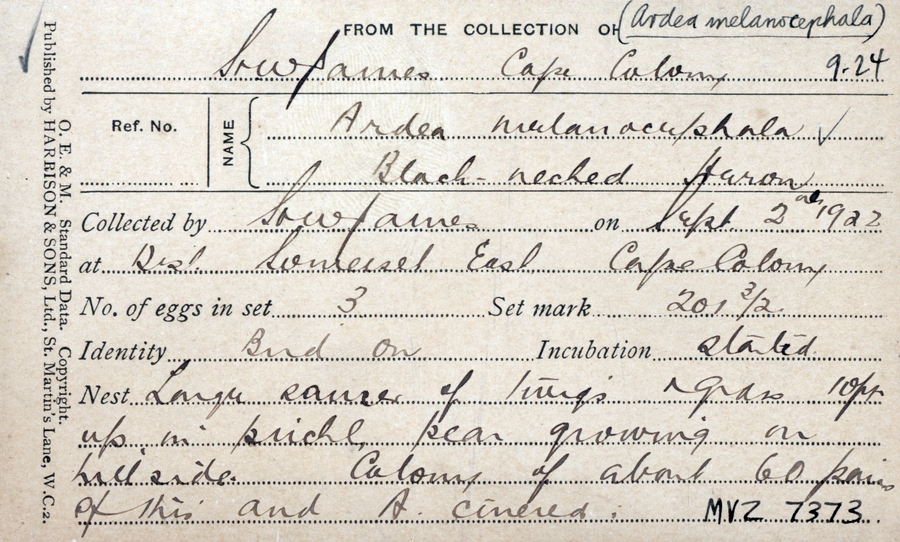 FROM THE COLLECTION OF (Ardea melanocephala)
James Cape Colony 9.24
Ref. No. NAME Ardea melanocephala ✓
Black-necked Heron
Collected by James on Sept. 2nd 1922
at Dist. Somerset East Cape Colony
No. of eggs in set 3 Set mark 201 3/2
Identity Bird on Incubation started.
Nest Large saucer of twigs & grass 10ft
up in prickly pear growing on
hillside. Colony of about 60 pairs
of this and A. cinerea.
MVZ 7373
O. E. & M. Standard Data. Copyright.
Published by HARRISON & SONS, Ltd., St. Martin's Lane, W.C.2.